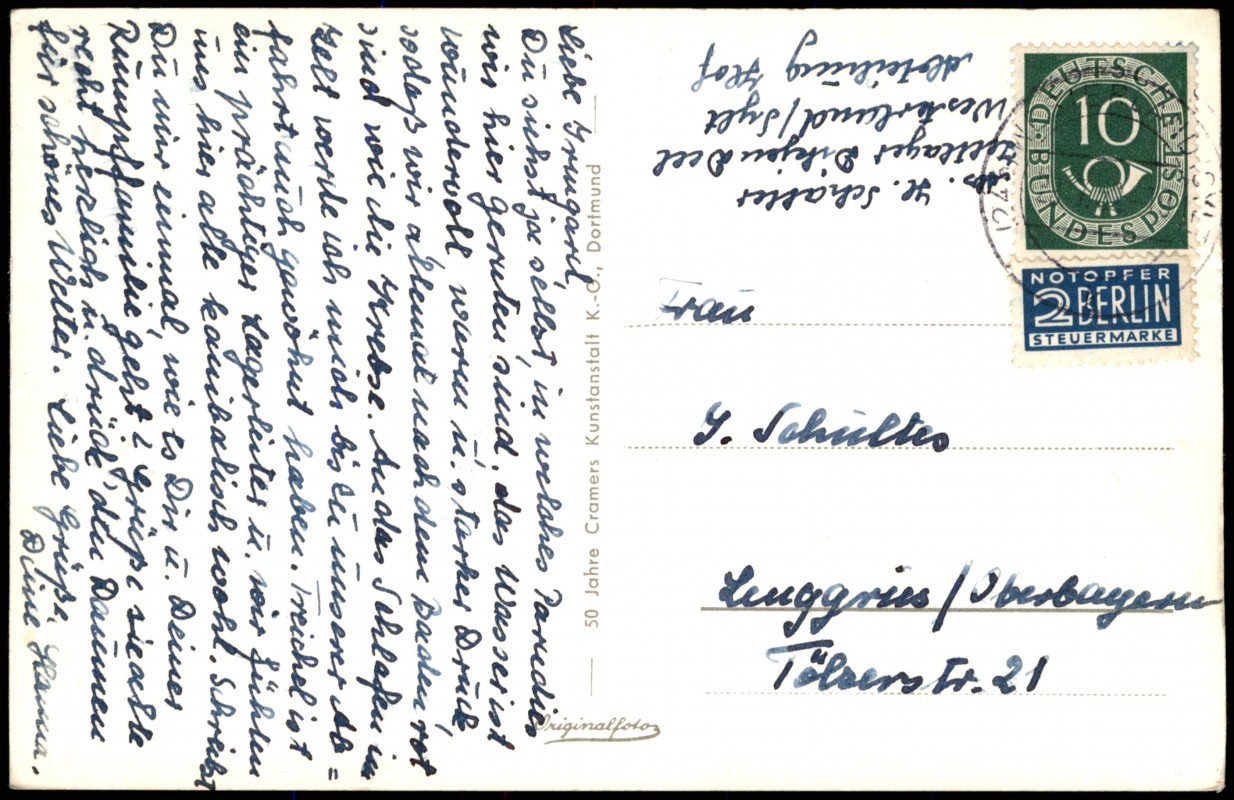 Liebe Irmgard,
Du siehst ja selbst, in welches Paradies
wir hier geraten sind. das Wasser ist
wundervoll warm u. starker Druck,
sodaß wir abends nach dem Baden rot
sind wie die Krebse. An das Schlafen im
Zelt werde ich mich bis zu unserer Ab=
fahrt auch gewöhnt haben. Treichel ist
ein prächtiger Lagerleiter u. wir fühlen
uns hier alle kanibalisch wohl. Schreibst
Du mir einmal, wie es Dir u. Deiner
Rumpffamilie geht? Grüße sie alle
recht herzlich u. drück' den Daumen
für schönes Wetter. Liebe Grüße,
Deine Hanna.
50 Jahre Cramers Kunstanstalt K.-G., Dortmund
Originalfoto
Abs. H. Schäfer
Zeltlager Dikjen Deel
Westerland/Sylt
Abteilung Hof
DEUTSCHE
BUNDESPOST
10
NOTOPFER
2 BERLIN
STEUERMARKE
Frau
I. Schultes
Lenggries / Oberbayern
Tölzerstr. 21